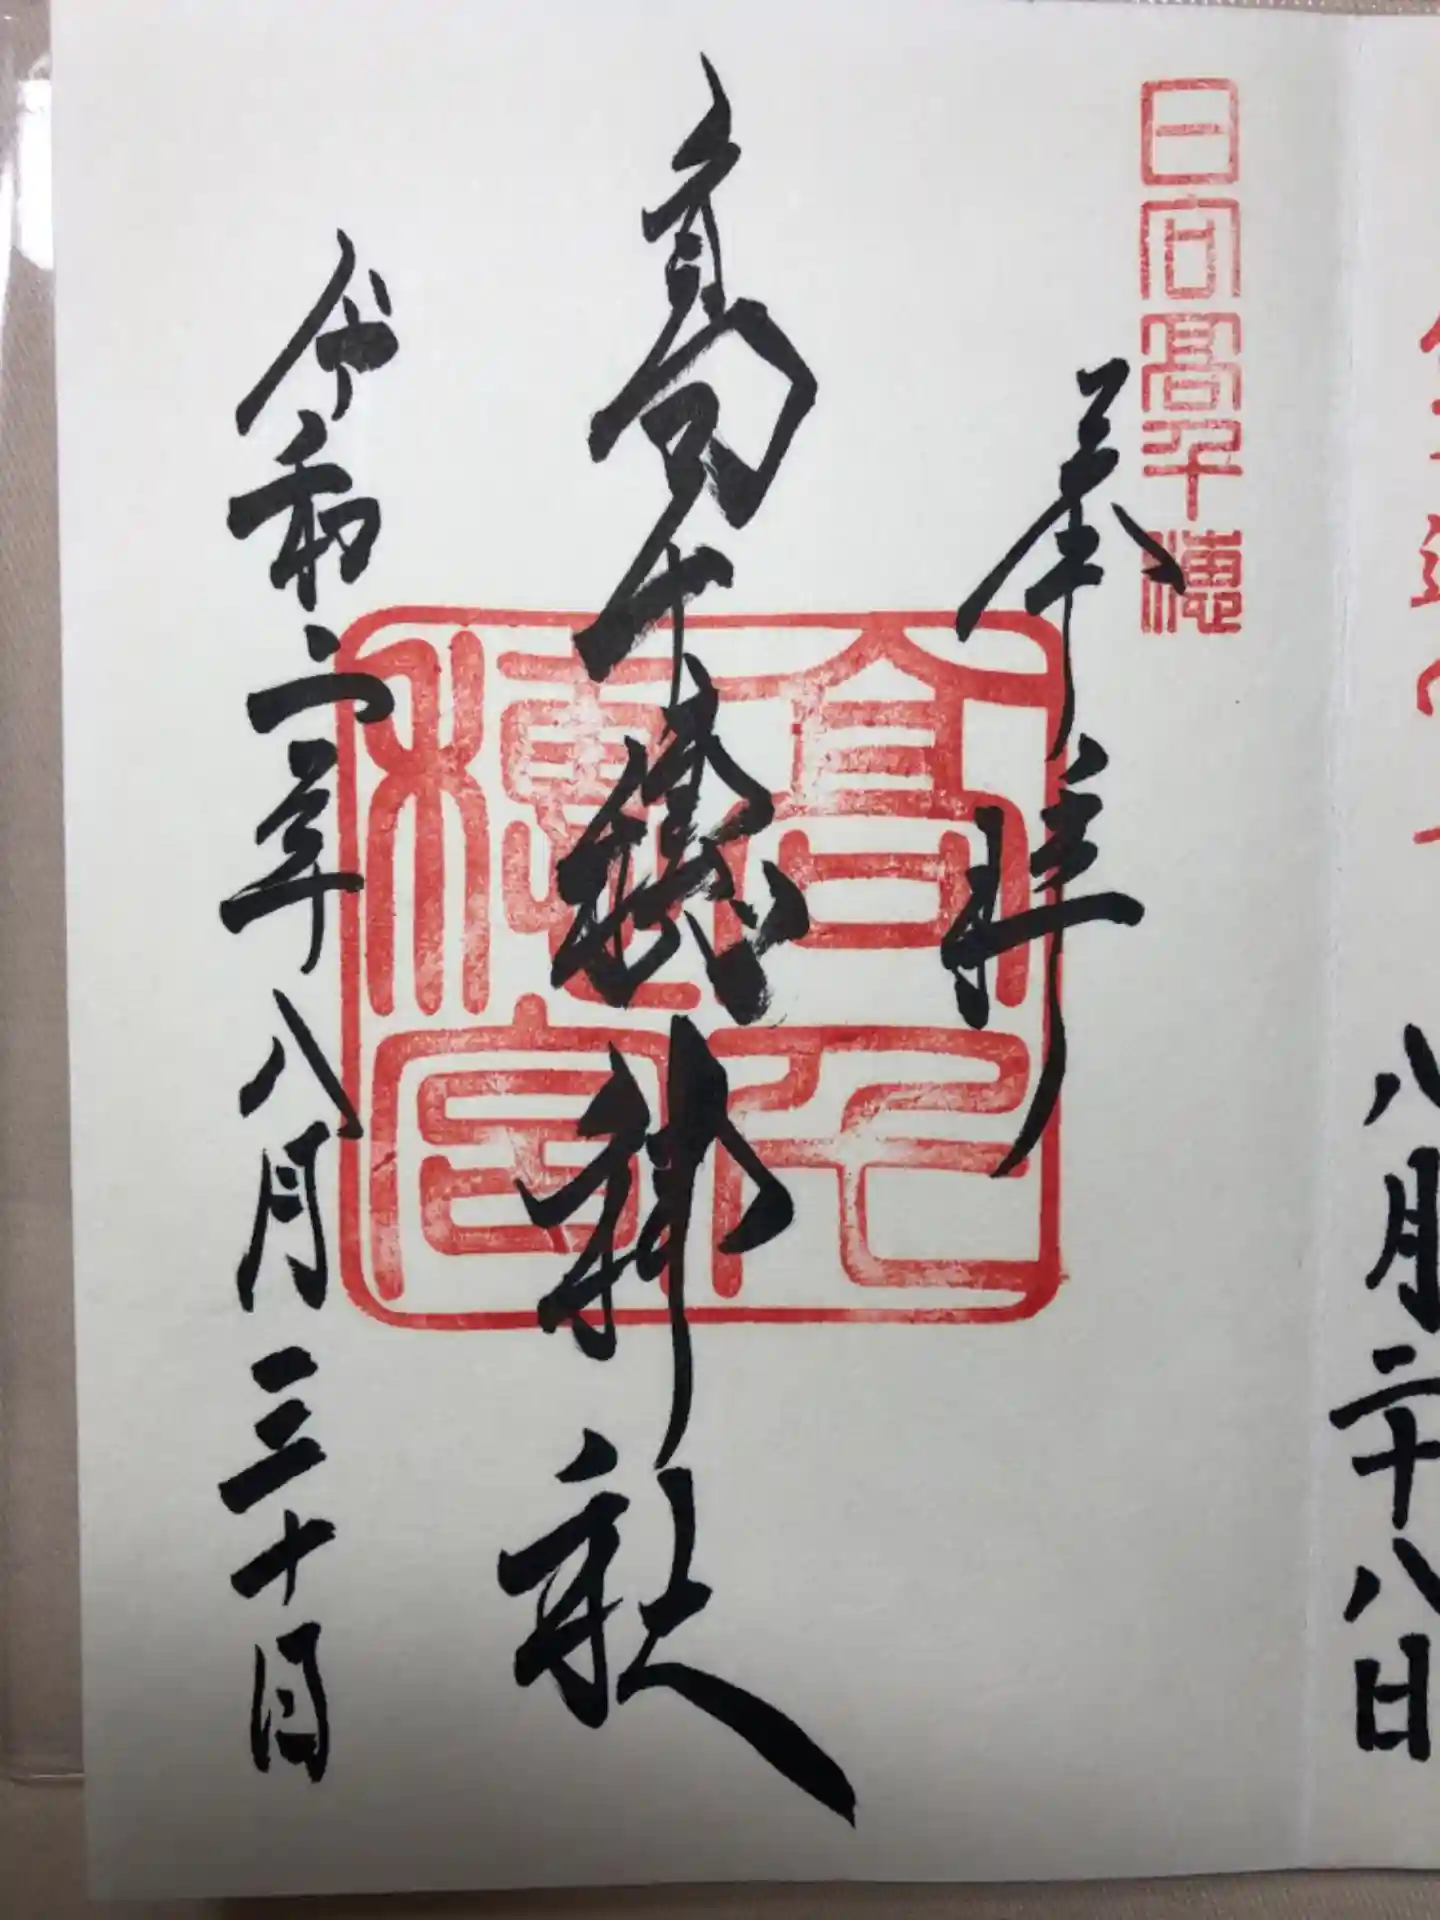 八月二十八日
日向髙千穂
奉拝
高千穂神社
高千穂宮
令和二年八月三十日